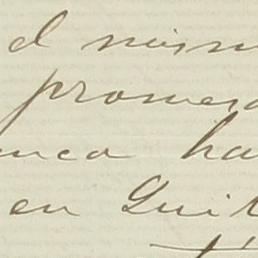 el mism
promesa
unca ha
en Quit